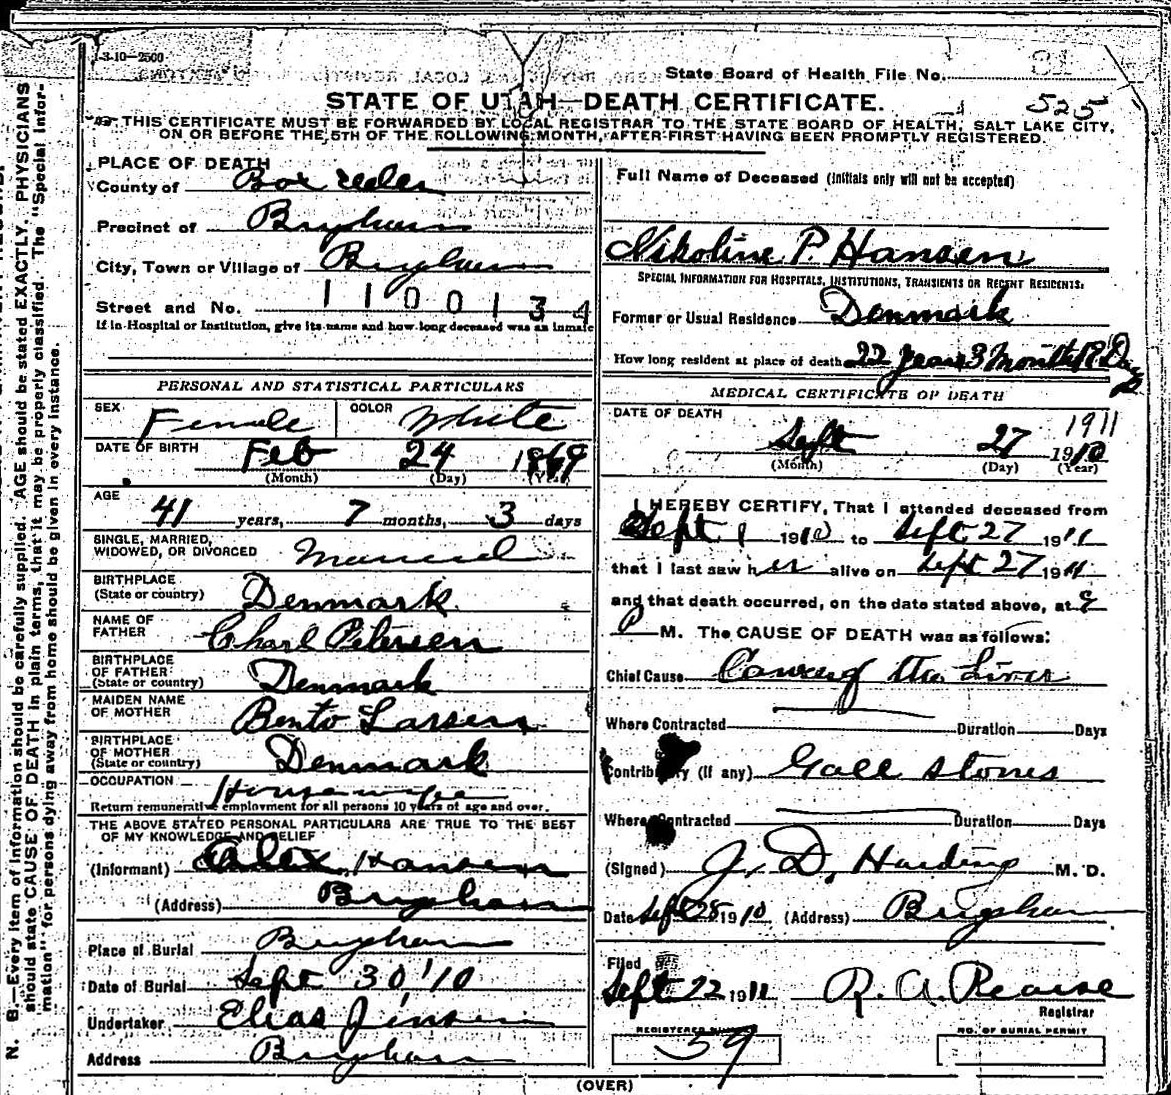 1-3-10—2500
State Board of Health File No. 81
525
STATE OF UTAH—DEATH CERTIFICATE.
THIS CERTIFICATE MUST BE FORWARDED BY LOCAL REGISTRAR TO THE STATE BOARD OF HEALTH, SALT LAKE CITY,
ON OR BEFORE THE 5TH OF THE FOLLOWING MONTH, AFTER FIRST HAVING BEEN PROMPTLY REGISTERED.
PLACE OF DEATH
County of Box Elder
Precinct of Brigham
City, Town or Village of Brigham
Street and No. 1 1 0 0 1 3 4
If in Hospital or Institution, give its name and how long deceased was an inmate
PERSONAL AND STATISTICAL PARTICULARS
SEX Female COLOR White
DATE OF BIRTH Feb 24 1869
(Month) (Day) (Year)
AGE
41 years, 7 months, 3 days
SINGLE, MARRIED,
WIDOWED, OR DIVORCED Married
BIRTHPLACE
(State or country) Denmark
NAME OF
FATHER Charl Petersen
BIRTHPLACE
OF FATHER
(State or country) Denmark
MAIDEN NAME
OF MOTHER Bento Larsen
BIRTHPLACE
OF MOTHER
(State or country) Denmark
OCCUPATION Housewife
Return remunerative employment for all persons 10 years of age and over.
THE ABOVE STATED PERSONAL PARTICULARS ARE TRUE TO THE BEST
OF MY KNOWLEDGE AND BELIEF
(Informant) Alex Hansen
(Address) Brigham
Place of Burial Brigham
Date of Burial Sept 30 '10
Undertaker Elias Jensen
Address Brigham
Full Name of Deceased (Initials only will not be accepted)
Nikoline P. Hansen
SPECIAL INFORMATION FOR HOSPITALS, INSTITUTIONS, TRANSIENTS OR RECENT RESIDENTS.
Former or Usual Residence Denmark
How long resident at place of death 22 years 3 months
MEDICAL CERTIFICATE OF DEATH
DATE OF DEATH 1911
Sept 27 1910
(Month) (Day) (Year)
I HEREBY CERTIFY, That I attended deceased from
Sept 1 1910 to Sept 27 1911
that I last saw her alive on Sept 27 1911
and that death occurred, on the date stated above, at 9
P M. The CAUSE OF DEATH was as follows:
Chief Cause Cancer of the Liver
Where Contracted Duration Days
Contributory (if any) Gall stones
Where Contracted Duration Days
(Signed) J. D. Harding M. D.
Date Sept 28 1910 (Address) Brigham
Filed
Sept 22 1911 R. A. Pearse
Registrar
REGISTERED NUMBER
59
NO. OF BURIAL PERMIT
(OVER)
N. B.—Every item of information should be carefully supplied. AGE should be stated EXACTLY. PHYSICIANS
should state CAUSE OF DEATH in plain terms, that it may be properly classified. The "Special Infor-
mation" for persons dying away from home should be given in every instance.